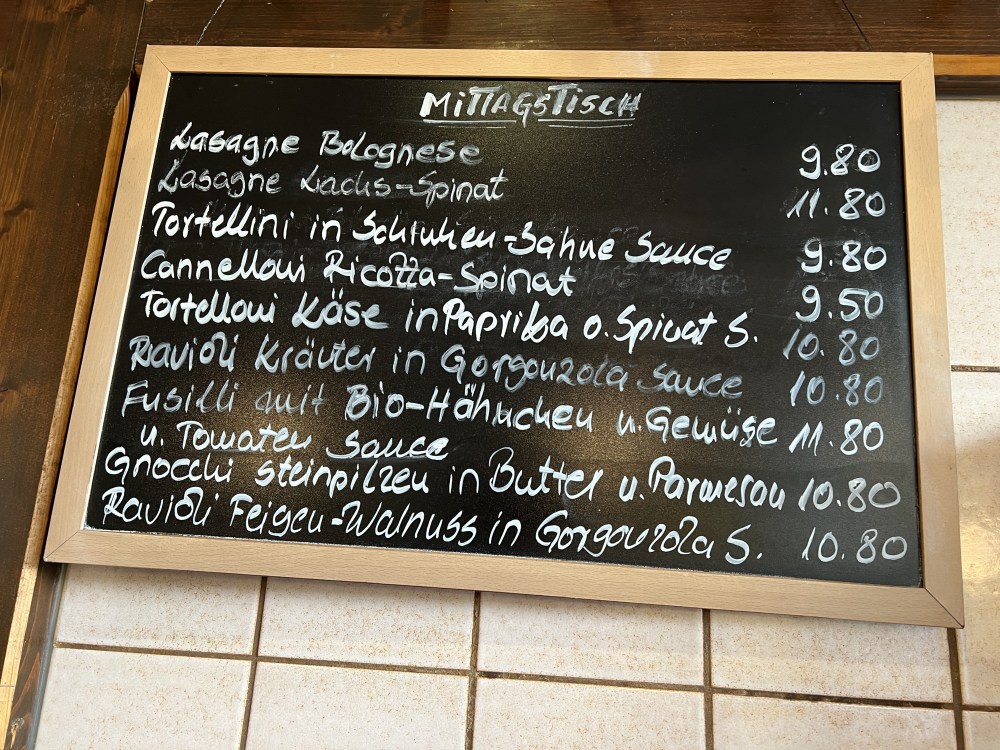 MiTTAGSTiSCH
Lasagne Bolognese 9.80
Lasagne Lachs-Spinat 11.80
Tortellini in Schinken-Sahne Sauce 9.80
Cannelloni Ricotta-Spinat 9.50
Tortelloni Käse in Paprika o. Spinat S. 10.80
Ravioli Kräuter in Gorgonzola Sauce 10.80
Fusilli mit Bio-Hähnchen u. Gemüse 11.80
u. Tomaten Sauce
Gnocchi Steinpilzen in Butter u. Parmesan 10.80
Ravioli Feigen-Walnuss in Gorgonzola S. 10.80